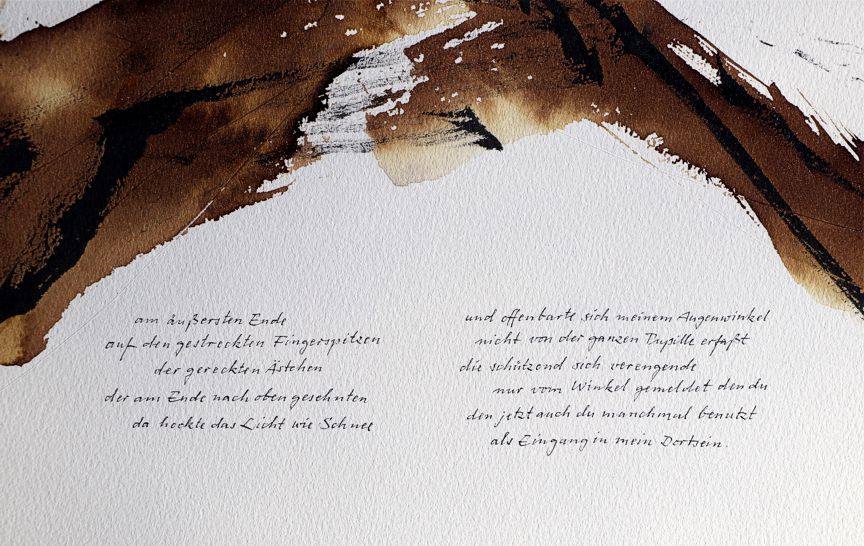 am äußersten Ende
auf den gestreckten Fingerspitzen
der gereckten Ästchen
der am Ende nach oben gesehnten
da hockte das Licht wie Schnee
und offenbarte sich meinem Augenwinkel
nicht von der ganzen Pupille erfaßt
die schützend sich verengende
nur vom Winkel gemeldet den du
den jetzt auch du manchmal benutzt
als Eingang in mein Dortsein.